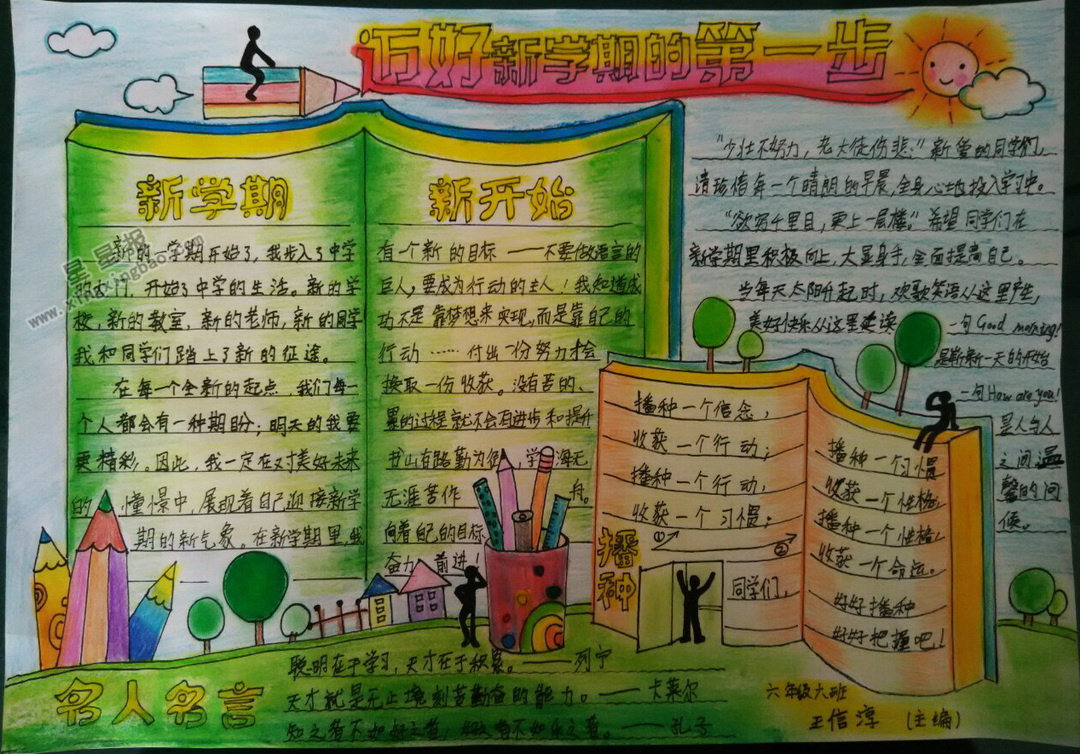 迈好新学期的第一步
新学期
新的一学期开始了,我步入了中学
的大门,开始了中学的生活。新的学
校,新的教室,新的老师,新的同学
我和同学们踏上了新的征途。
在每一个全新的起点,我们每一
个人都会有一种期盼;明天的我要
更精彩。因此,我一定在对美好未来
的憧憬中,展现着自己迎接新学
期的新气象。在新学期里,我
新开始
有一个新的目标——不要做语言的
巨人,要成为行动的主人!我知道成
功不是靠梦想来实现,而是靠自己的
行动……付出一份努力才会
换取一份收获。没有苦的、
累的过程就不会有进步和提升
书山有路勤为径,学海无
无涯苦作舟。
向着自己的目标,
奋力前进!
"少壮不努力,老大徒伤悲。"新学的同学们,
请珍惜每一个晴朗的早晨,全身心地投入学习中。
"欲穷千里目,更上一层楼。"希望同学们在
新学期里积极向上,大显身手,全面提高自己。
当每天太阳升起时,欢歌笑语从这里产生,
美好快乐从这里延续
一句Good morning!
是崭新一天的开始
一句How are you!
是人与人
之间温
馨的问
候。
播种
播种一个信念,
收获一个行动;
播种一个行动,
收获一个习惯;
①
②
同学们,
播种一个习惯
收获一个性格,
播种一个性格,
收获一个命运。
好好播种
好好把握吧!
名人名言
聪明在于学习,天才在于积累。——列宁
天才就是无止境刻苦勤奋的能力。——卡莱尔
知之者不如好之者,好之者不如乐之者。——孔子
六年级六班
王信淳 (主编)
星星报
www.xingxingbao.com